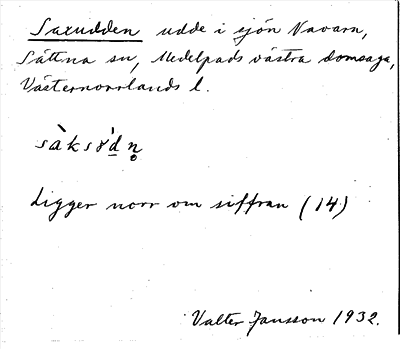 Saxudden udde i sjön Navarn,
Sättna sn, Medelpads västra domsaga,
Västernorrlands l.
sàksɤ́dn̥
Ligger norr om siffran (14)
Valter Jansson 1932.